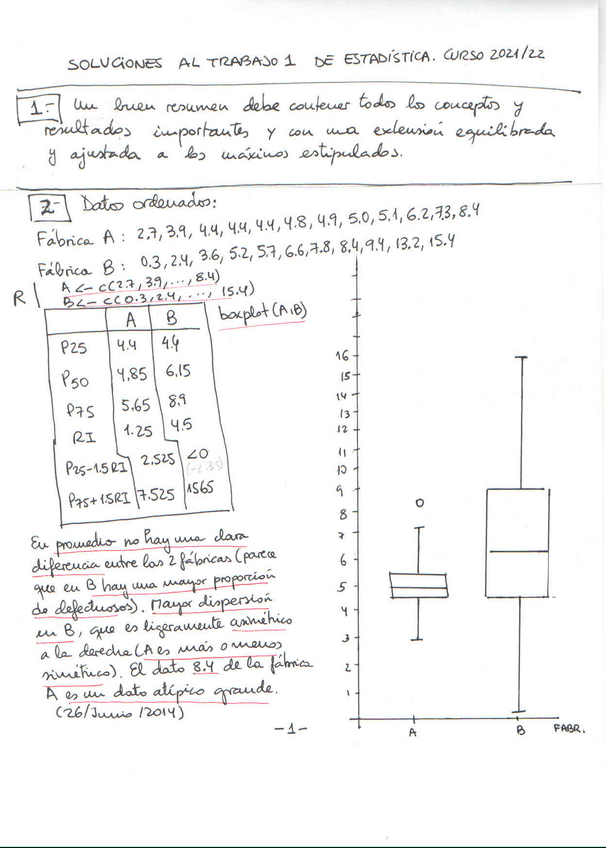 SOLUCIONES AL TRABAJO 1 DE ESTADÍSTICA. CURSO 2021/22
1.- Un buen resumen debe contener todos los conceptos y
resultados importantes y con una extensión equilibrada
y ajustada a los máximos estipulados.
2- Datos ordenados:
Fábrica A: 2.7, 3.9, 4.4, 4.4, 4.4, 4.8, 4.9, 5.0, 5.1, 6.2, 7.3, 8.4
Fábrica B: 0.3, 2.4, 3.6, 5.2, 5.7, 6.6, 7.8, 8.4, 9.4, 13.2, 15.4
R | A <- c(2.7, 3.9, ..., 8.4)
B <- c(0.3, 2.4, ..., 15.4)
boxplot(A,B)
A B
P25 4.4 4.4
P50 4.85 6.15
P75 5.65 8.9
RI 1.25 4.5
P25-1.5RI 2.525 <0
(-2.35)
P75+1.5RI 7.525 15.65
En promedio no hay una clara
diferencia entre las 2 fábricas (parece
que en B hay una mayor proporción
de defectuosos). Mayor dispersión
en B, que es ligeramente asimétrico
a la derecha (A es más o menos
simétrico). El dato 8.4 de la fábrica
A es un dato atípico grande.
(26/Junio/2014)
16
15
14
13
12
11
10
9
8
7
6
5
4
3
2
1
A B FABR.
-1-